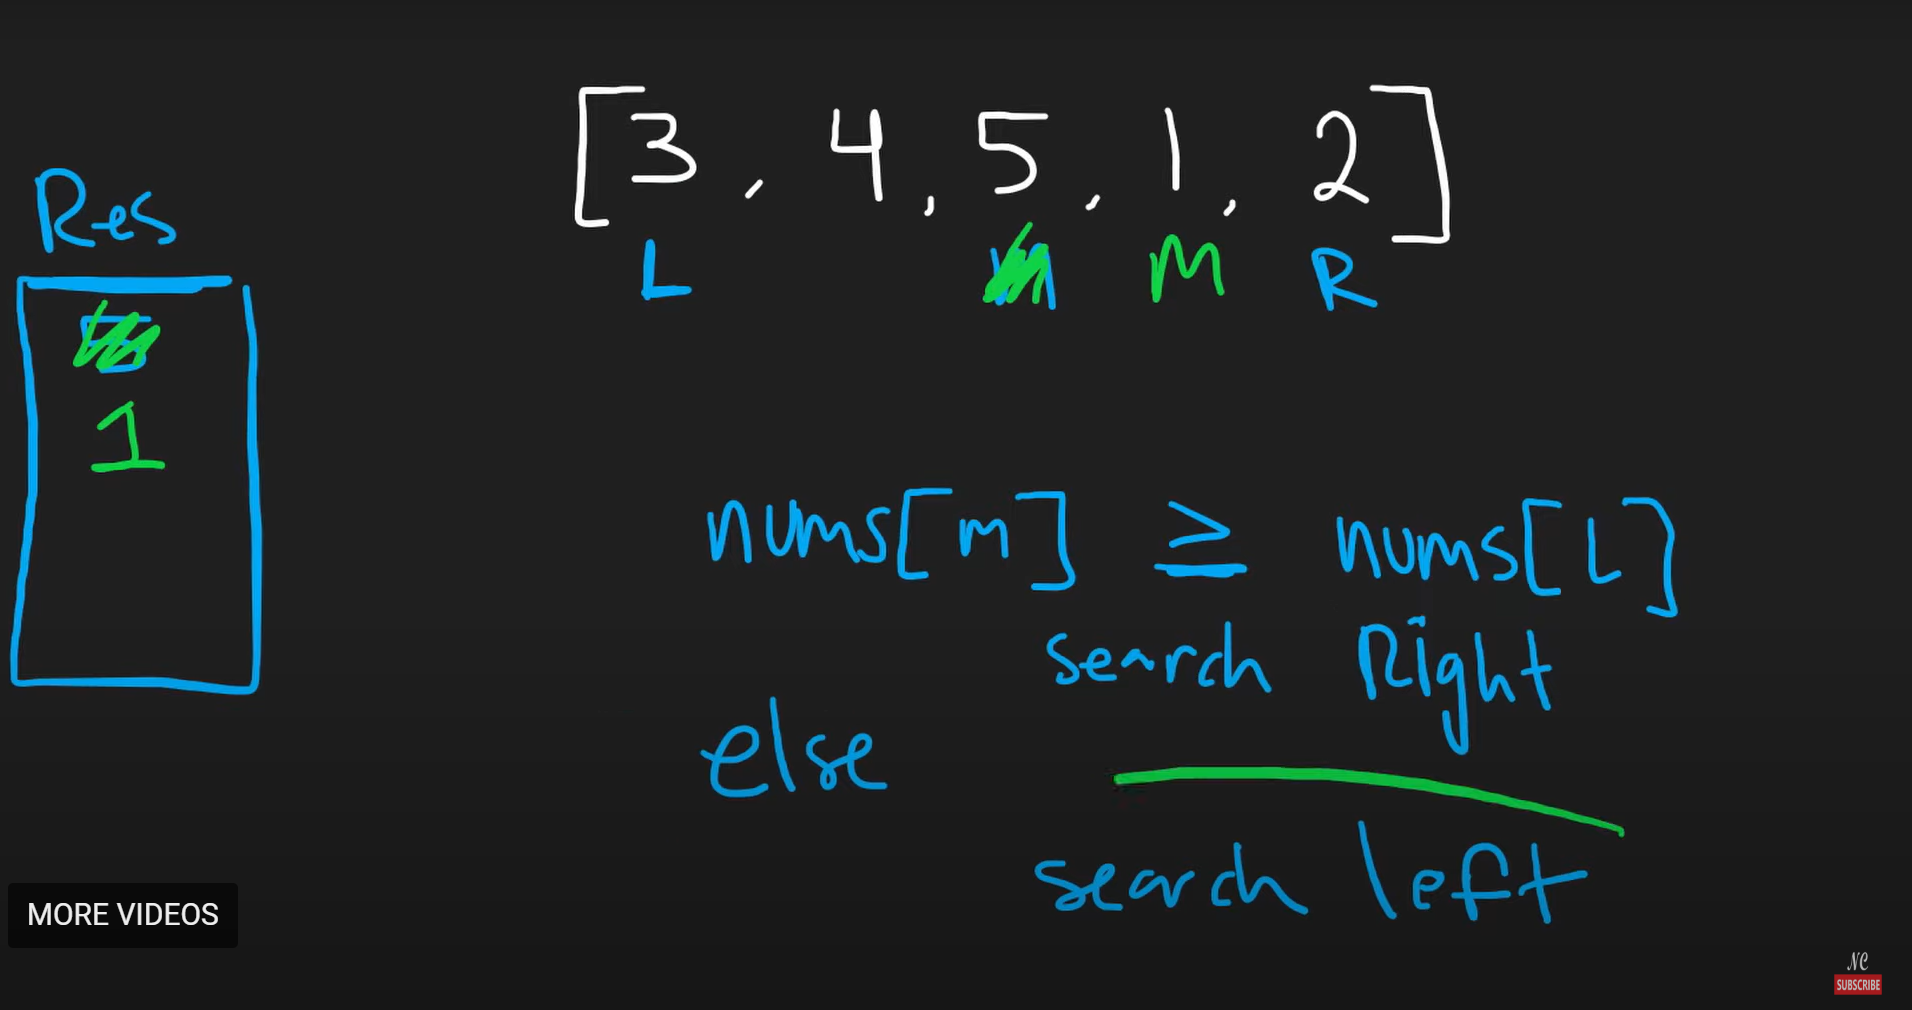 [3, 4, 5, 1, 2]
L M R
Res
1
nums[m] ≥ nums[L]
search Right
else
search left
MORE VIDEOS
NC
SUBSCRIBE